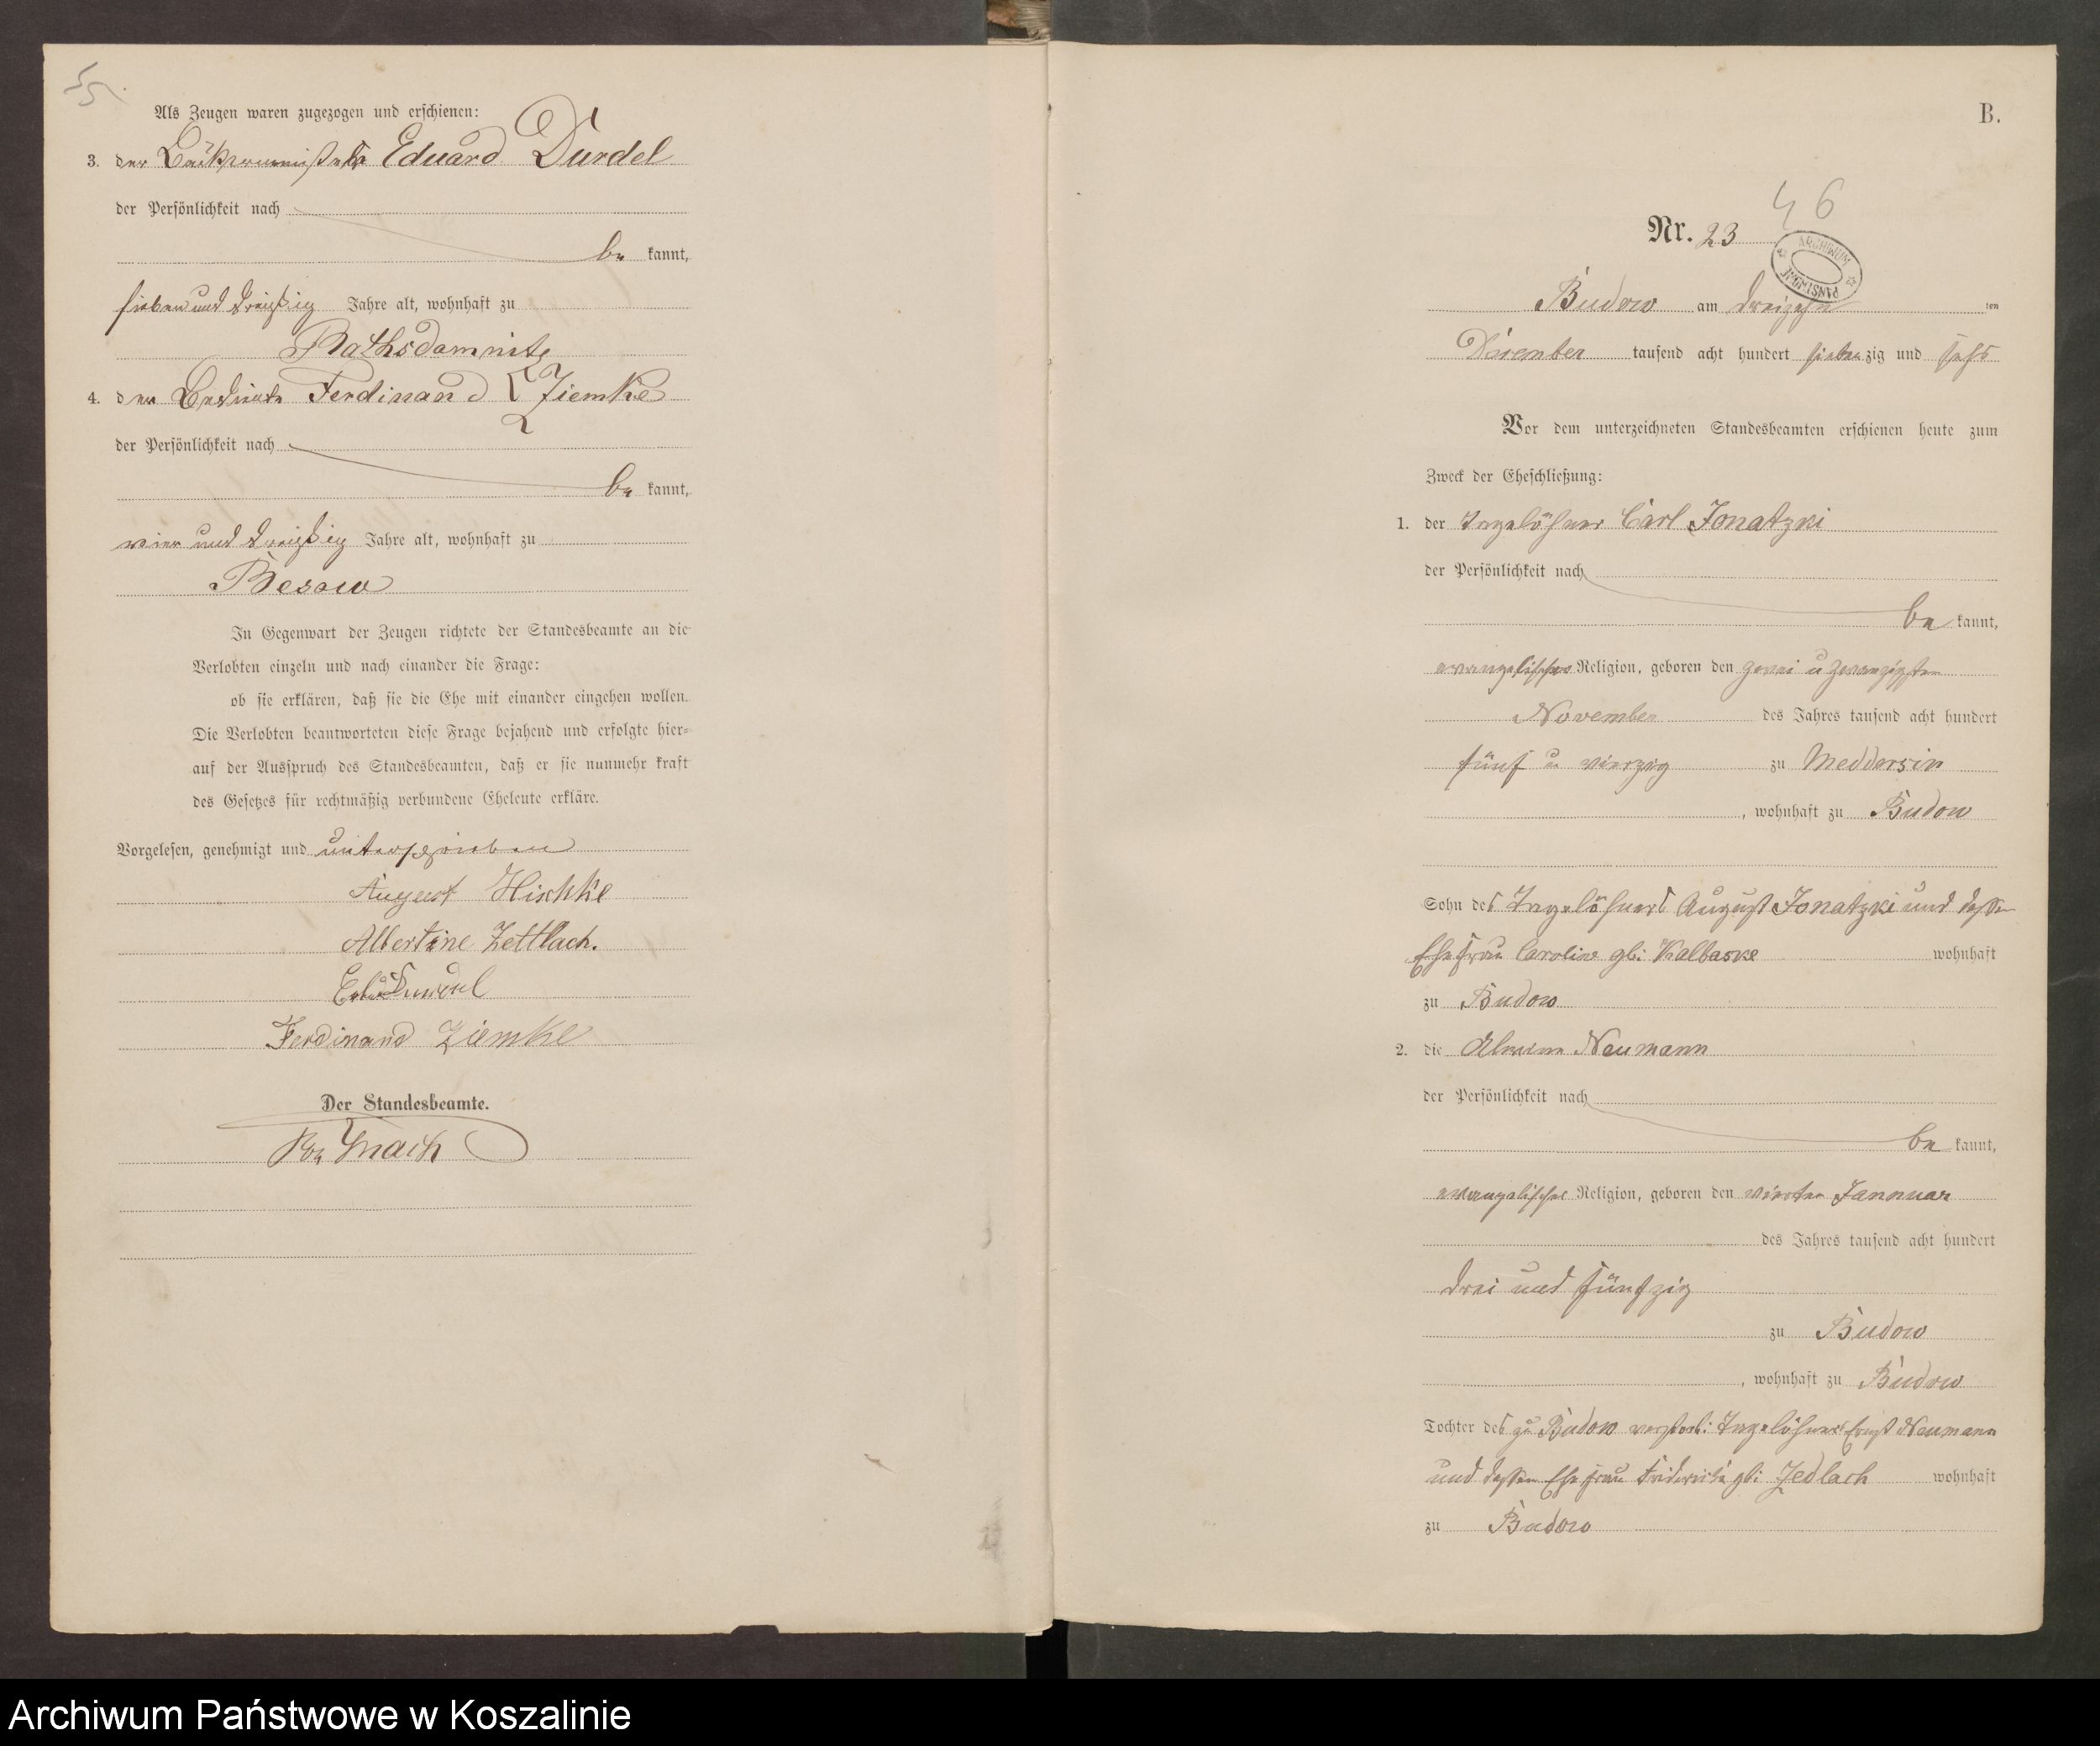 55.
Als Zeugen waren zugezogen und erschienen:
3. der Eduard Durdel
der Persönlichkeit nach
be kannt,
sieben und dreißig Jahre alt, wohnhaft zu
Rathsdamnitz
4. der Ferdinand Ziemke
der Persönlichkeit nach
be kannt,
vier und dreißig Jahre alt, wohnhaft zu
Besow
In Gegenwart der Zeugen richtete der Standesbeamte an die
Verlobten einzeln und nach einander die Frage:
ob sie erklären, daß sie die Ehe mit einander eingehen wollen.
Die Verlobten beantworteten diese Frage bejahend und erfolgte hier-
auf der Ausspruch des Standesbeamten, daß er sie nunmehr kraft
des Gesetzes für rechtmäßig verbundene Eheleute erkläre.
Vorgelesen, genehmigt und unterschrieben
August Hischke
Albertine Zettlach.
Ferdinand Ziemke
Der Standesbeamte.
B.
46
Nr. 23
ARCHIWUM PAŃSTWOWE
Budow am dreizehn ten
December tausend acht hundert siebenzig und sechs
Vor dem unterzeichneten Standesbeamten erschienen heute zum
Zweck der Eheschließung:
1. der Tagelöhner Carl Jonatzki
der Persönlichkeit nach
be kannt,
evangelischer Religion, geboren den zwei u zwanzigsten
November des Jahres tausend acht hundert
fünf u vierzig zu Meddersin
, wohnhaft zu Budow
Sohn des Tagelöhners August Jonatzki und dessen
Ehefrau Caroline gb: Kalbaske wohnhaft
zu Budow
2. die Alwine Neumann
der Persönlichkeit nach
be kannt,
evangelischer Religion, geboren den vierten Jannuar
des Jahres tausend acht hundert
drei und fünfzig
zu Budow
, wohnhaft zu Budow
Tochter des zu Budow verstorb: Tagelöhners Ernst Neumann
und dessen Ehefrau Friderike gb: Zedlach wohnhaft
zu Budow
Archiwum Państwowe w Koszalinie